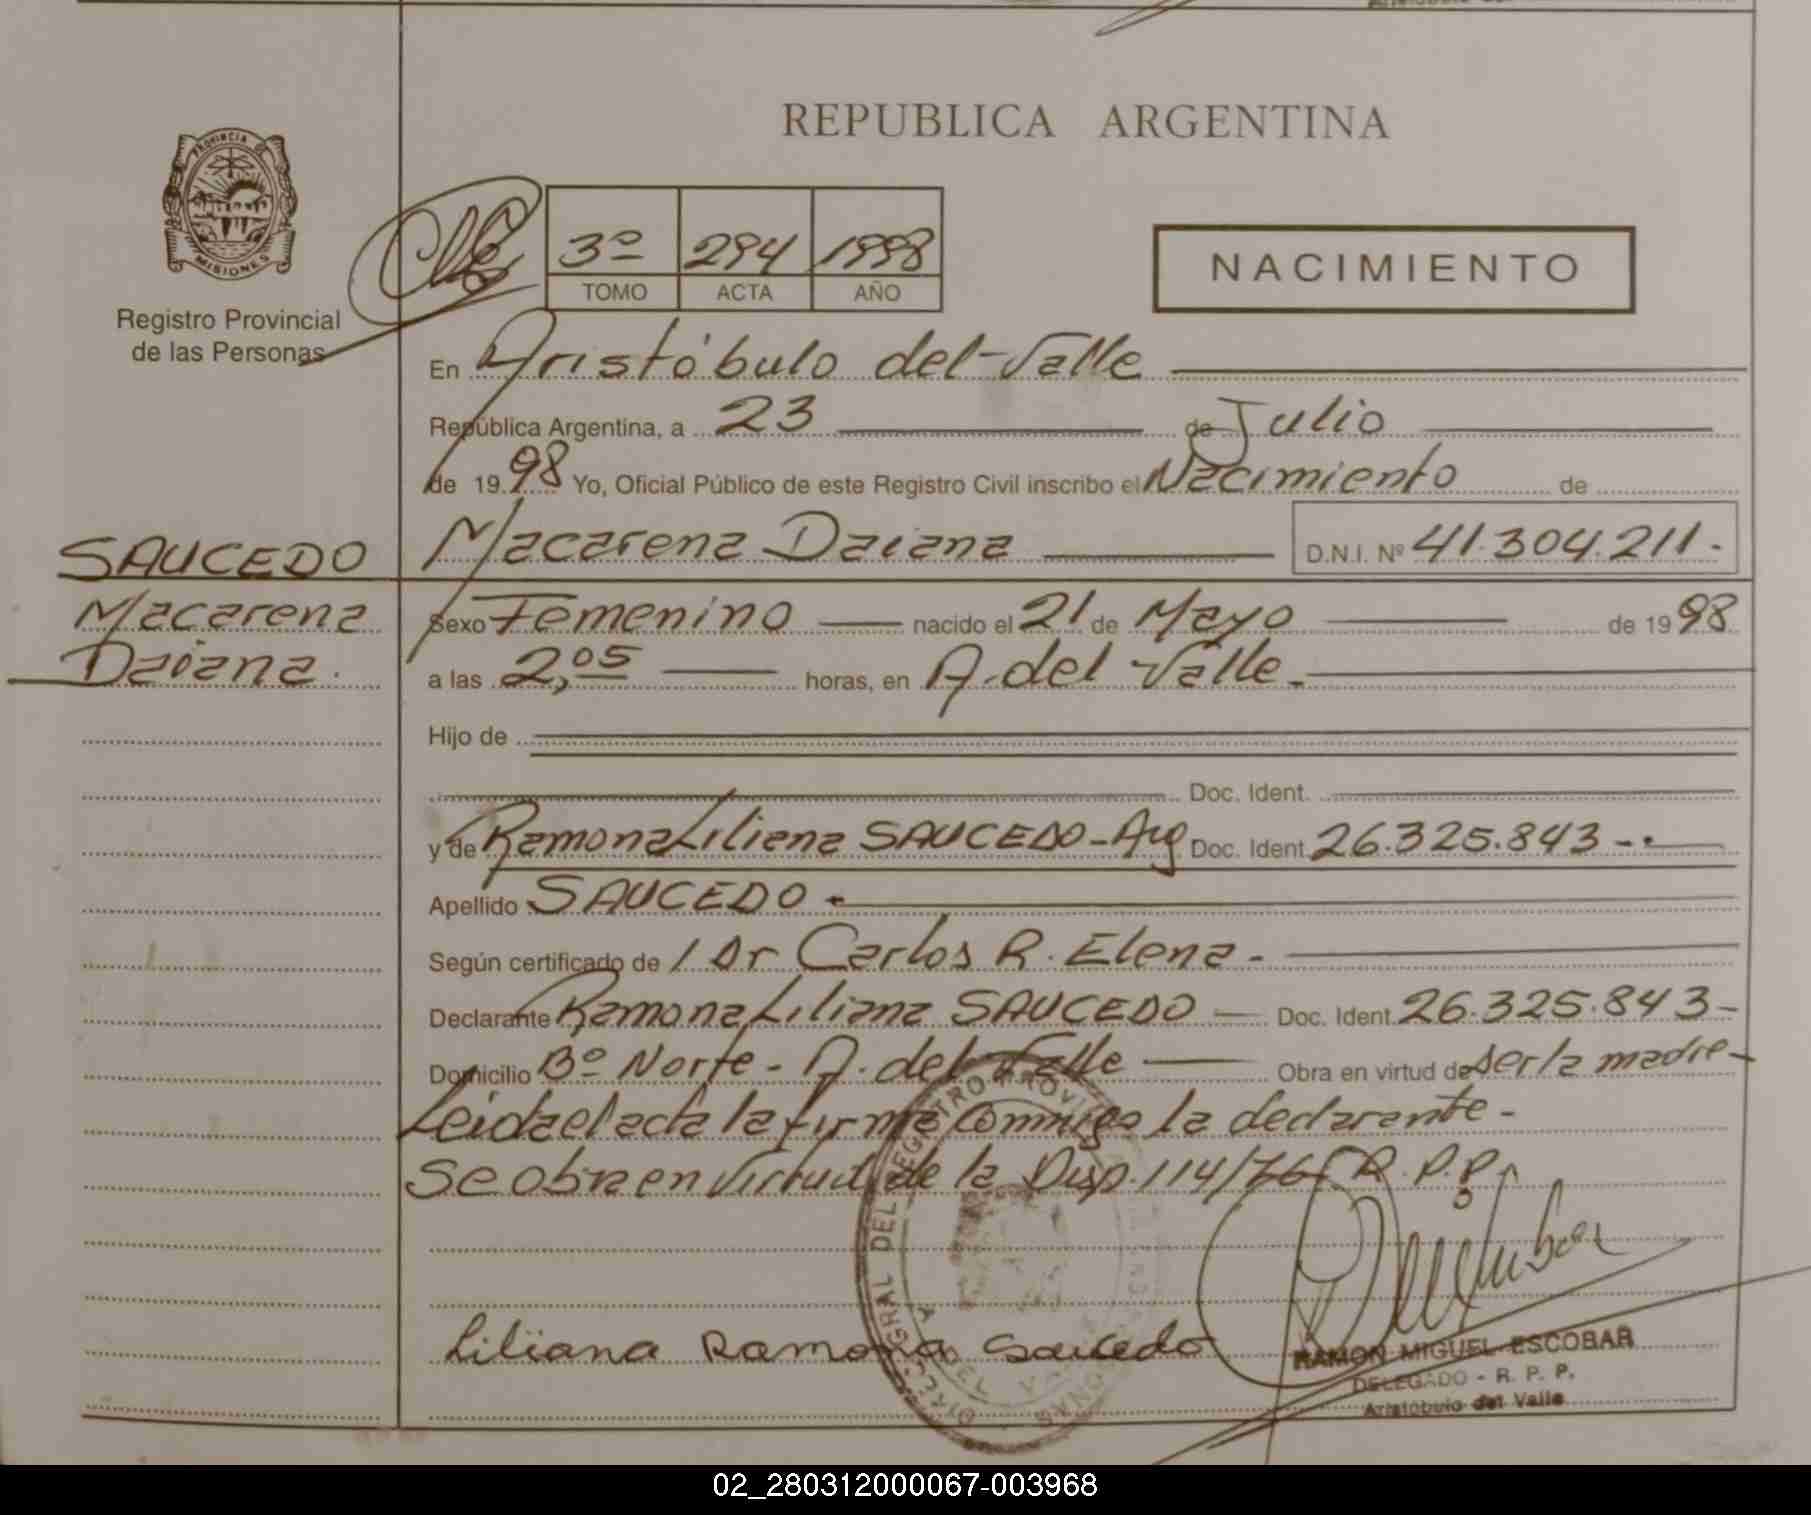 REPUBLICA ARGENTINA
PROVINCIA DE
MISIONES
Registro Provincial
de las Personas
3º 294 1998
TOMO ACTA AÑO
NACIMIENTO
En Aristóbulo del Valle
República Argentina, a 23 de Julio
de 1998 Yo, Oficial Público de este Registro Civil inscribo el Nacimiento de
SAUCEDO
Macarena
Daiana.
Macarena Daiana D.N.I. Nº 41.304.211.-
Sexo Femenino nacido el 21 de Mayo de 1998
a las 2,05 horas, en A. del Valle.
Hijo de
Doc. Ident.
y de Ramona Liliana SAUCEDO - Arg Doc. Ident. 26.325.843 -.
Apellido SAUCEDO -
Según certificado de 1 Dr Carlos R. Elena -
Declarante Ramona Liliana SAUCEDO Doc. Ident. 26.325.843 -
Domicilio Bº Norte - A. del Valle Obra en virtud de ser la madre -
Leida el acta la firma Conmigo la declarante -
Se obra en virtud de la Disp. 114/76 R.P.P.
Liliana Ramona Saucedo
RAMON MIGUEL ESCOBAR
DELEGADO - R. P. P.
Aristóbulo del Valle
02_280312000067-003968